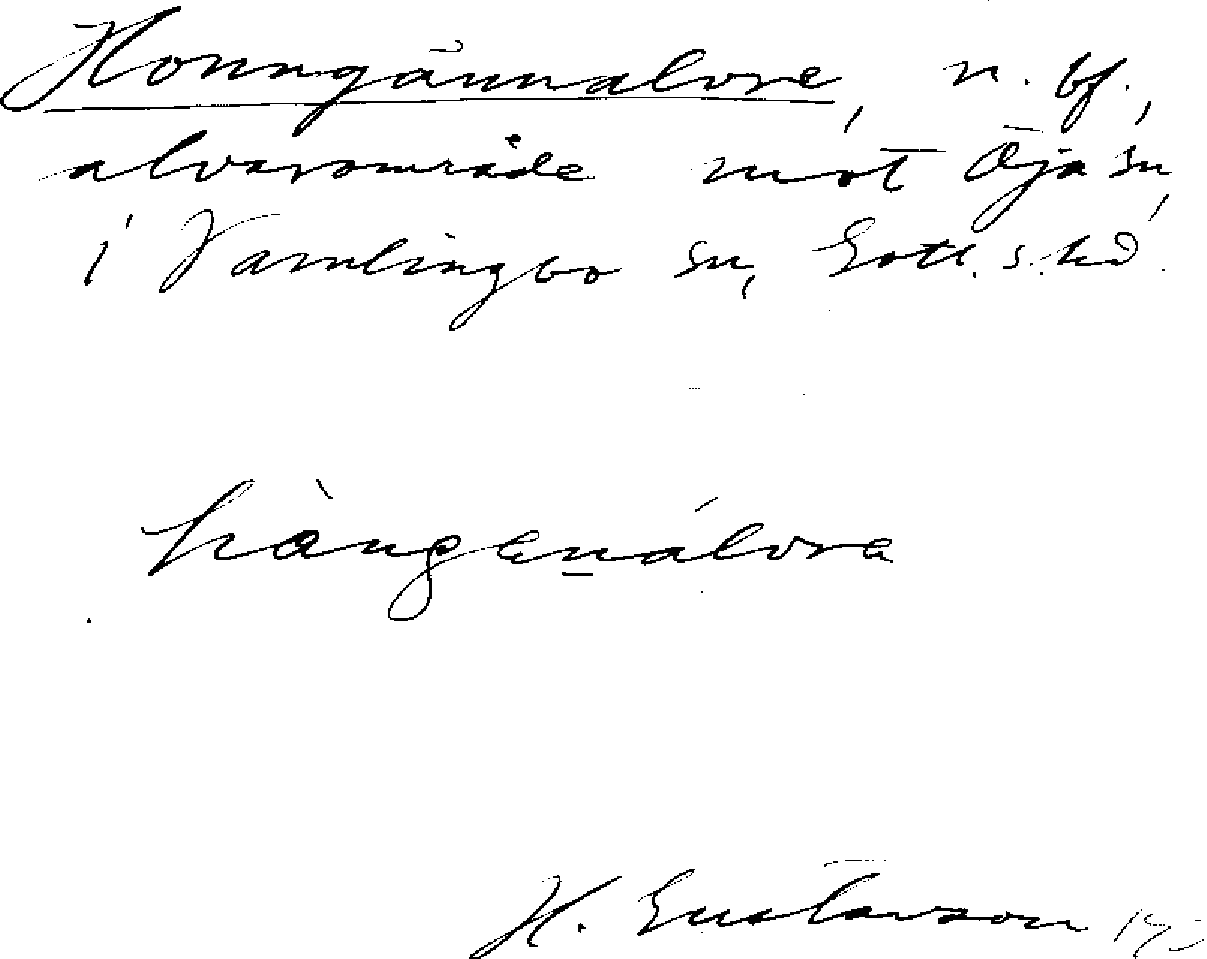 Honngännalvre, n. bf.,
alvarområde mot Öja sn
i Vamlingbo sn, Gotl. s. hd.
hàngenálvre
H. Gustavson